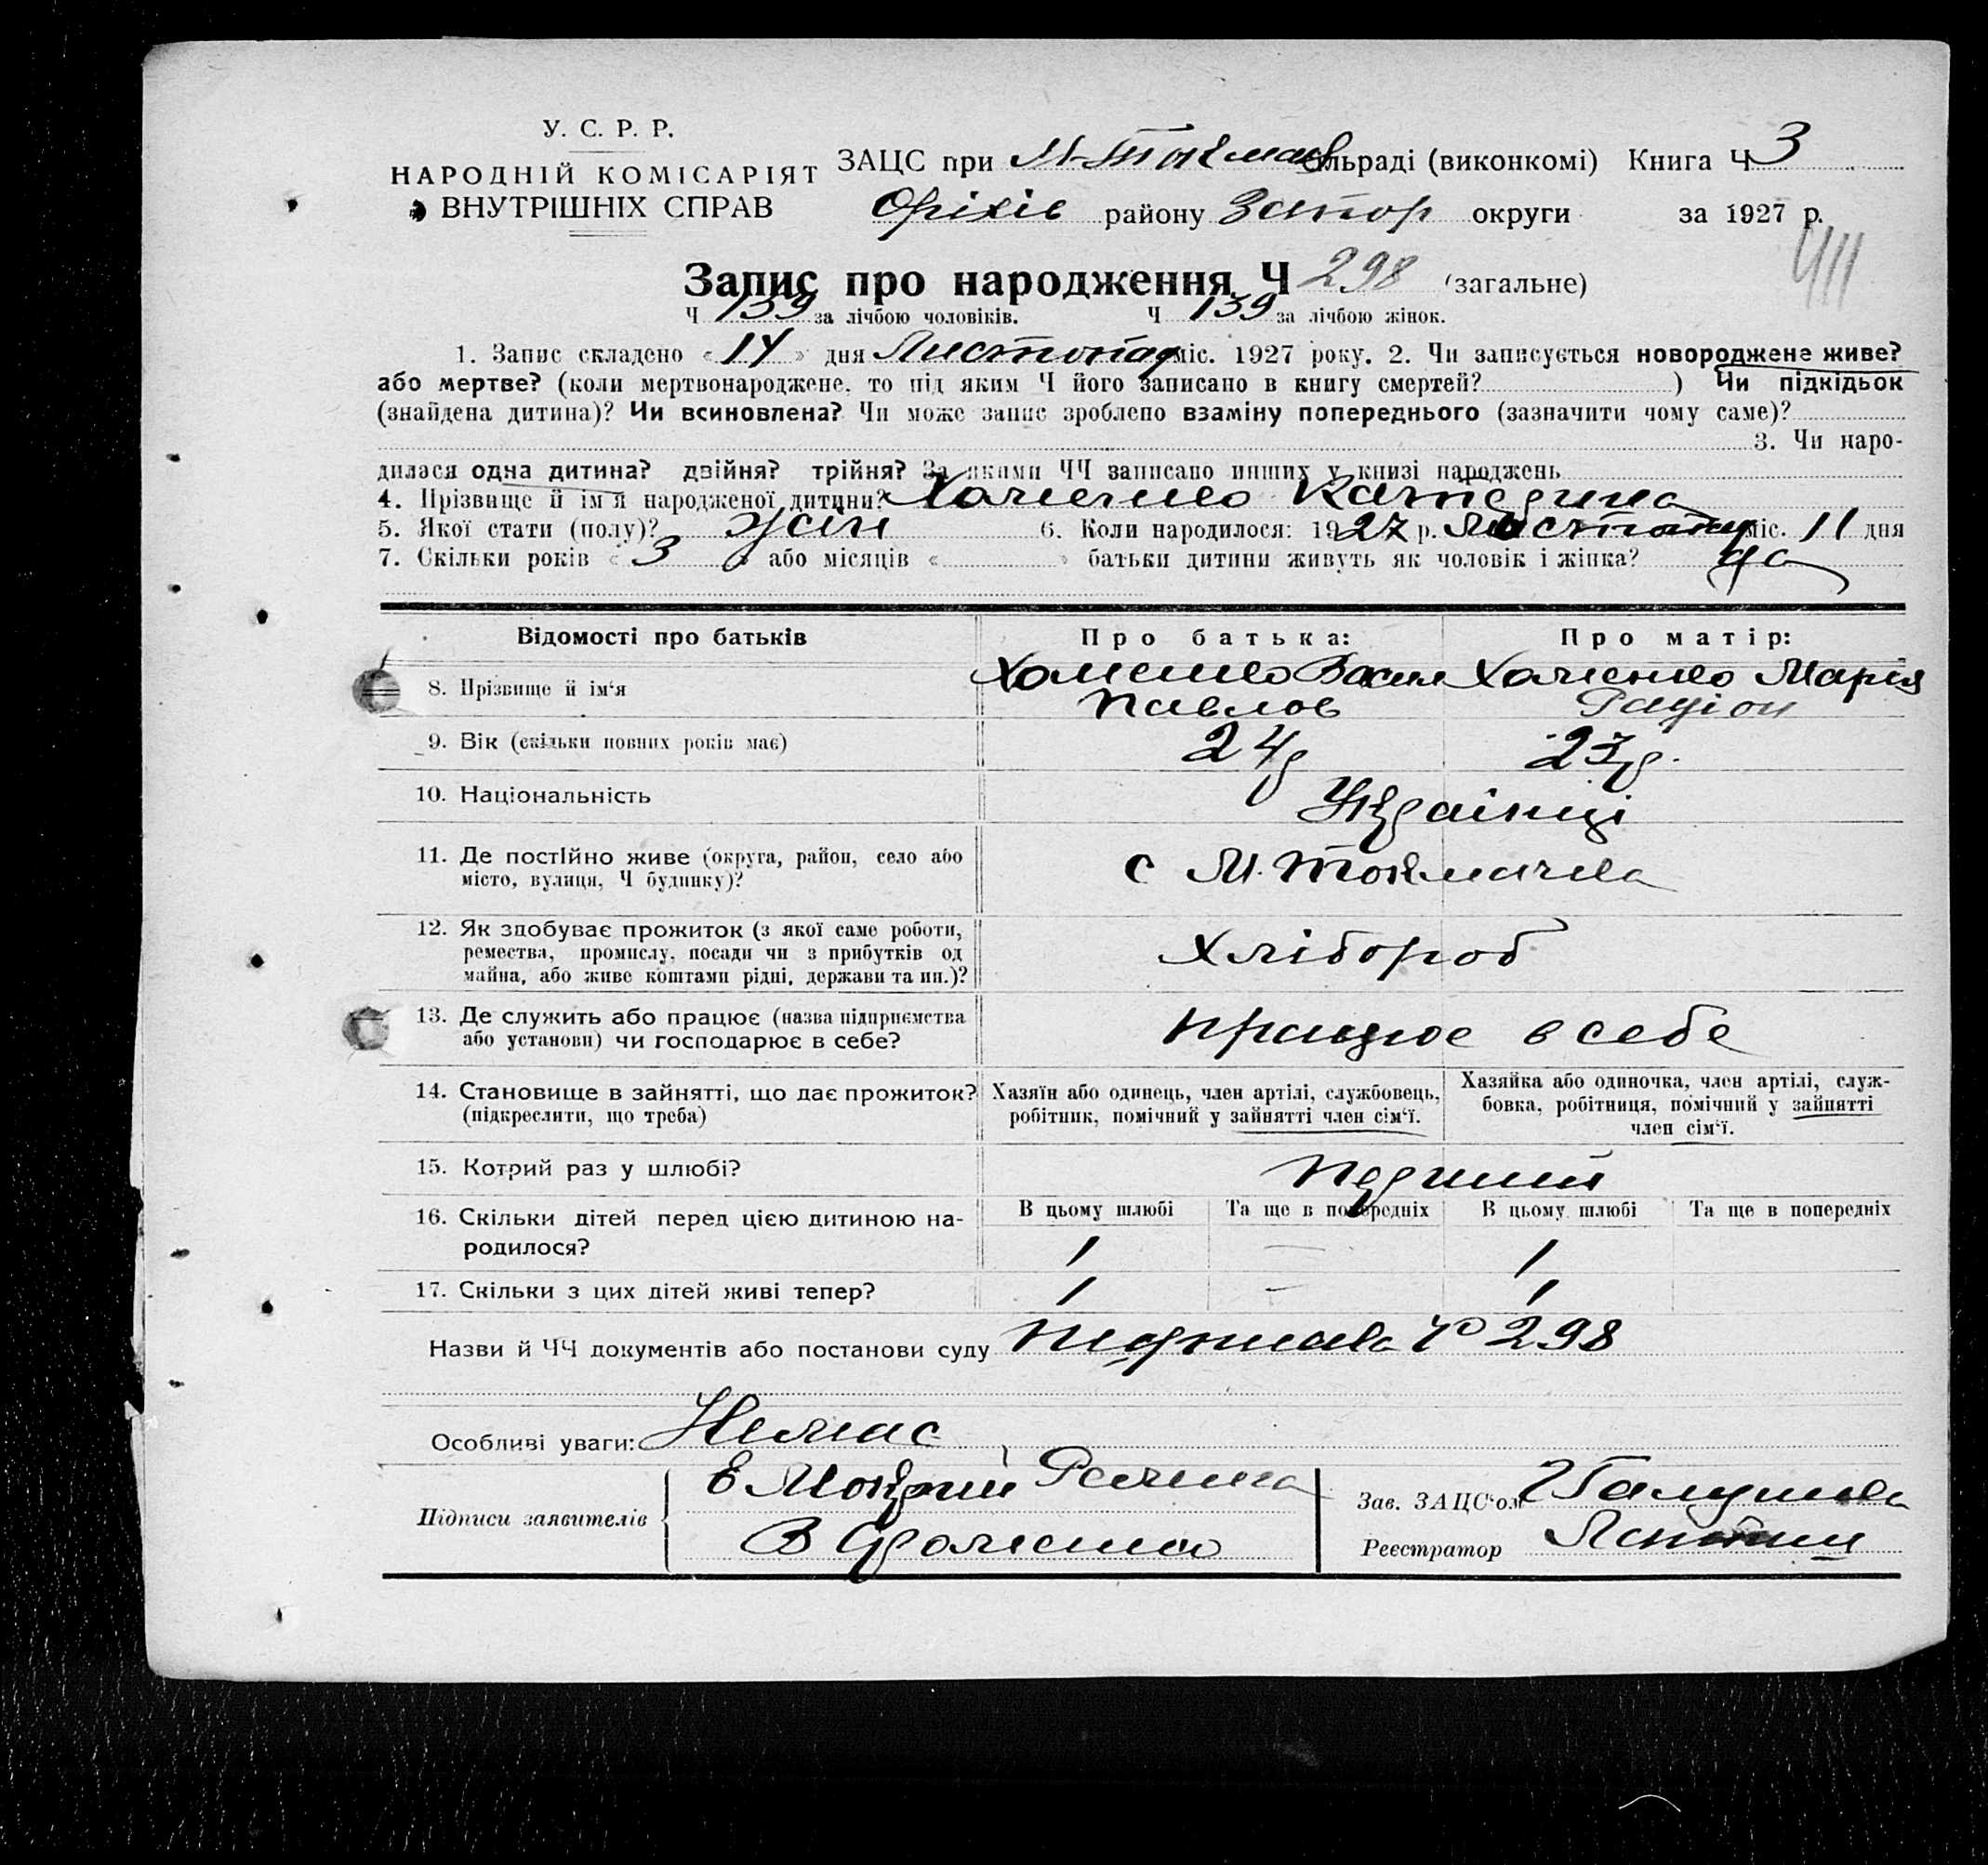 У. С. Р. Р.
НАРОДНІЙ КОМІСАРІЯТ
ВНУТРІШНІХ СПРАВ
ЗАЦС при М-Токмач сільраді (виконкомі) Книга Ч 3
Оріхів району Запор округи за 1927 р.
411
Запис про народження Ч 298 (загальне)
Ч 139 за лічбою чоловіків. Ч 139 за лічбою жінок.
1. Запис складено « 14 » дня Листопад міс. 1927 року. 2. Чи записується новороджене живе?
або мертве? (коли мертвонароджене, то під яким Ч його записано в книгу смертей? ) Чи підкідьок
(знайдена дитина)? Чи всиновлена? Чи може запис зроблено взаміну попереднього (зазначити чому саме)?
3. Чи наро-
дилася одна дитина? двійня? трійня? За якими ЧЧ записано инших у книзі народжень
4. Прізвище й ім'я народженої дитини? Хоменко Катерина
5. Якої стати (полу)? жін 6. Коли народилося: 1927 р. Листопад міс. 11 дня
7. Скільки років « 3 » або місяців « » батьки дитини живуть як чоловік і жінка? да
Відомості про батьків Про батька: Про матір:
8. Прізвище й ім'я Хоменко Васил Павлов Хоменко Марія
9. Вік (скільки повних років має) 24р 23р.
10. Національність Українці
11. Де постійно живе (округа, район, село або
місто, вулиця, Ч будинку)? с М. Токмачка
12. Як здобуває прожиток (з якої саме роботи,
ремества, промислу, посади чи з прибутків од
майна, або живе коштами рідні, держави та ин.)? Хлібороб
13. Де служить або працює (назва підприємства
або установи) чи господарює в себе? працює в себе
14. Становище в зайнятті, що дає прожиток?
(підкреслити, що треба)
Хазяїн або одинець, член артілі, службовець,
робітник, помічний у зайнятті член сім'ї.
Хазяйка або одиночка, член артілі, служ-
бовка, робітниця, помічний у зайнятті
член сім'ї.
15. Котрий раз у шлюбі? перший
16. Скільки дітей перед цією дитиною на-
родилося?
В цьому шлюбі Та ще в попередніх В цьому шлюбі Та ще в попередніх
1 — 1
17. Скільки з цих дітей живі тепер? 1 — 1
Назви й ЧЧ документів або постанови суду 298
Особливі уваги: Немає
Підписи заявителів
Зав. ЗАЦС'ом
Реєстратор